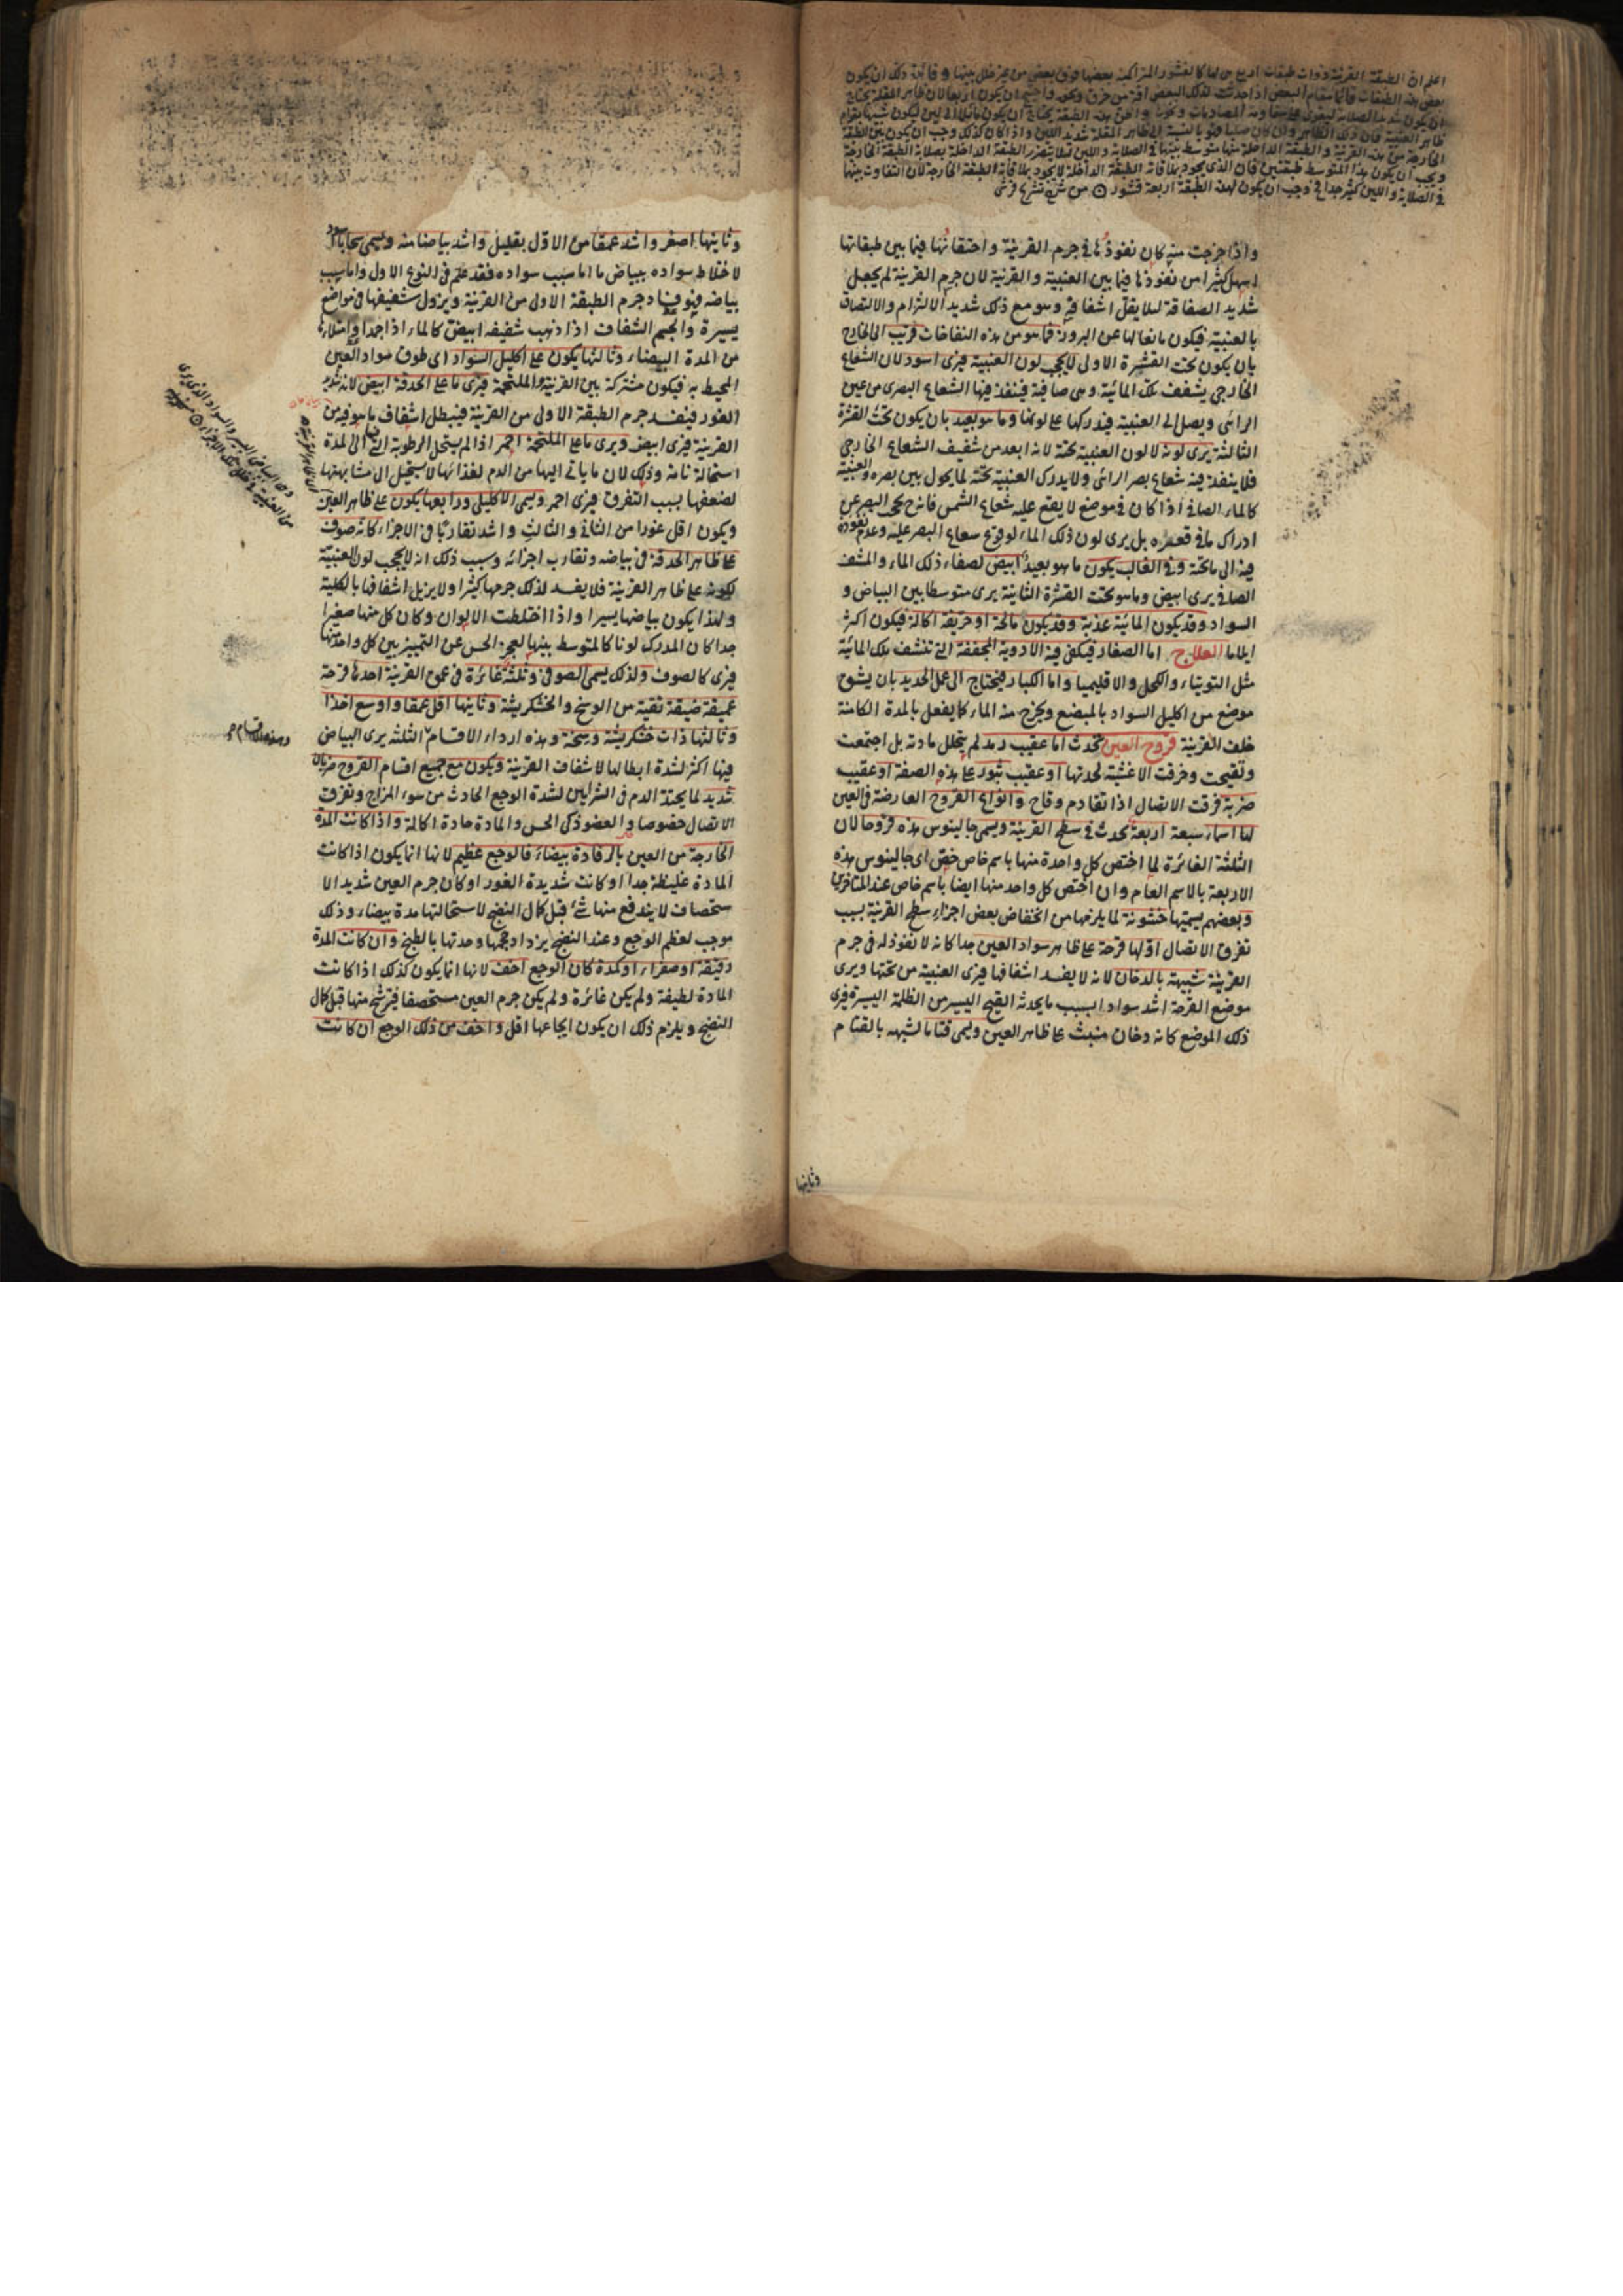 اعلم ان الطبقة القرنية ذوات طبقات اربع هى لها كالقشور المتراكمة بعضها فوق بعض من غير خلل بينها وفائدة ذلك ان يكون
بعض هذه الطبقات قائما مقام البعض اذا حدث لذلك البعض افة من خرق ونحوه
الخارجة من هذه القرنية والطبقة الداخلة منها متوسط بينها فى الصلابة واللين لئلا يتضرر الطبقة الداخلة بصلابة الطبقة الخارجة
ويجب ان يكون هذا المتوسط طبقتين فان الذى يجود بملاقاته الطبقة الداخلة لا يجود بملاقاة الطبقة الخارجة لان التفاوت بينها
فى الصلابة واللين كثير جدا فوجب ان يكون لهذه الطبقة اربعة قشور من شرح تشريح قرشى
واذا خرجت منه كان نفوذها فى جرم القرنية واحتقانها فيما بين طبقاتها
اسهل كثيرا من نفوذها فيما بين العنبية والقرنية لان جرم القرنية لم يجعل
شديد الصفاقة لئلا يقل اشفافه وهو مع ذلك شديد الالتزام والالتصاق
بالعنبية فيكون مانعا لها عن البروز فما هو من هذه النفاخات قريب الى الخارج
بان يكون تحت القشرة الاولى لا يحجب لون العنبية فيرى اسود لان الشعاع
الخارجى يشفف تلك المائية وهى صافية فينفذ فيها الشعاع البصرى من عين
الرائى ويصل الى العنبية فيدركها على لونها وما هو بعيد بان يكون تحت القشرة
الثالثة يرى لونه لا لون العنبية تحته لانه ابعد من شفيف الشعاع الخارجى
فلا ينفذ فيه شعاع بصر الرائى ولا يدرك العنبية تحته لما يحول بين بصره والعنبية
كالماء الصافى اذا كان فى موضع لا يقع عليه شعاع الشمس فانه يحجب البصر عن
ادراك ما فى قعره بل يرى لون ذلك الماء لوقوع شعاع البصر عليه وعدم نفوذه
فيه الى ما تحته وفى الغالب يكون ما هو بعيد ابيض لصفاء ذلك الماء والمشف
الصافى يرى ابيض وما هو تحت القشرة الثانية يرى متوسطا بين البياض و
السواد وقد يكون المائية عذبة وقد يكون مالحة او حريفة اكالة فيكون اكثر
ايلاما العلاج اما الصغار فيكفى فيه الادوية المجففة التى تنشف تلك المائية
مثل التوتياء والكحل والاقليميا واما الكبار فيحتاج الى عمل الحديد بان يشق
موضع من اكليل السواد بالمبضع ويخرج منه الماء كما يفعل بالمدة الكامنة
خلف القرنية قروح العين تحدث اما عقيب رمد لم يتحلل مادته بل اجتمعت
وتقيحت وخرقت الاغشية لحدتها او عقيب بثور على هذه الصفة او عقيب
ضربة فرقت الاتصال اذا تقادم وقاح وانواع القروح العارضة فى العين
لها اسماء سبعة اربعة تحدث فى سطح القرنية ويسمى جالينوس هذه قروحا لان
الثلثة الغائرة لما اختص كل واحدة منها باسم خاص خص اى جالينوس هذه
الاربعة بالاسم العام وان اختص كل واحد منها ايضا باسم خاص عند المتاخرين
وبعضهم يسميها خشونة لما يلزمها من انخفاض بعض اجزاء سطح القرنية بسبب
تفرق الاتصال اولها قرحة على ظاهر سواد العين جدا كانه لا نفوذ له فى جرم
القرنية شبيهة بالدخان لانه لا يفسد اشفافها فيرى العنبية من تحتها ويرى
موضع القرحة اشد سوادا بسبب ما يحدثه القيح اليسير من الظلمة اليسيرة فيرى
ذلك الموضع كانه دخان منبث على ظاهر العين ويسمى قتاما لشبهه بالقتام
وثانيها
وثانيها اصغر واشد عمقا من الاول بقليل واشد بياضا منه ويسمى سحابا
لاختلاط سواده ببياض ما اما سبب سواده فقد علم فى النوع الاول واما سبب
بياضه فهو فساد جرم الطبقة الاولى من القرنية ويزول شفيفها فى مواضع
يسيرة والجسم الشفاف اذا ذهب شفيفه ابيض كالماء اذا جمد او امتلاءها
من المدة البيضاء وثالثها يكون على اكليل السواد اى طوق سواد العين
المحيط به فيكون مشتركة بين القرنية والملتحمة فيرى ما على الحدقة ابيض لانه شديد
الغور فيفسد جرم الطبقة الاولى من القرنية فيبطل اشفاف ما هو فيه من
القرنية فيرى ابيض ويرى ما على الملتحمة احمر اذا لم يستحل الرطوبة التى فيها الى المدة
استحالة تامة وذلك لان ما ياتى اليها من الدم لغذائها لا يستحيل الى مشابهتها
لضعفها بسبب التفرق فيرى احمر ويسمى الاكليلى ورابعها يكون على ظاهر العين
ويكون اقل غورا من الثانى والثالث واشد تقاربا فى الاجزاء كانه صوف
على ظاهر الحدقة فى بياضه وتقارب اجزائه وسبب ذلك انه لا يحجب لون العنبية
لكونه على ظاهر القرنية فلا يفسد لذلك جرمها كثيرا ولا يزيل اشفافها بالكلية
ولهذا يكون بياضها يسيرا واذا اختلطت الالوان وكان كل منها صغيرا
جدا كان المدرك لونا كالمتوسط بينها لعجز الحس عن التمييز بين كل واحد منها
فيرى كالصوف ولذلك يسمى الصوفى وثلثة غائرة فى عمق القرنية احدها قرحة
عميقة ضيقة نقية من الوسخ والخشكريشة وثانيها اقل عمقا واوسع اخذا
وثالثها ذات خشكريشة وسخة وهذه اردا الاقسام الثلثة يرى البياض
فيها اكثر لشدة ابطالها لاشفاف القرنية ويكون مع جميع اقسام القروح ضربان
شديد لما يحتد الدم فى الشرايين لشدة الوجع الحادث من سوء المزاج وتفرق
الاتصال خصوصا والعضو ذكى الحس والمادة حادة اكالة واذا كانت المدة
الخارجة من العين بالرفادة بيضاء فالوجع عظيم لانها انما يكون اذا كانت
المادة غليظة جدا او كانت شديدة الغور او كان جرم العين شديد الا
ستحصاف لا يندفع منها شئ قبل كمال النضج لاستحالتها مدة بيضاء وذلك
موجب لعظم الوجع وعند النضج يزداد حجمها وحدتها بالطبخ وان كانت المدة
رقيقة او صفراء او كمدة كان الوجع اخف لانها انما يكون كذلك اذا كانت
المادة لطيفة ولم يكن غائرة ولم يكن جرم العين مستحصفا فيترشح منها قبل كمال
النضج ويلزم ذلك ان يكون ايجاعها اقل واخف من ذلك الوجع ان كانت